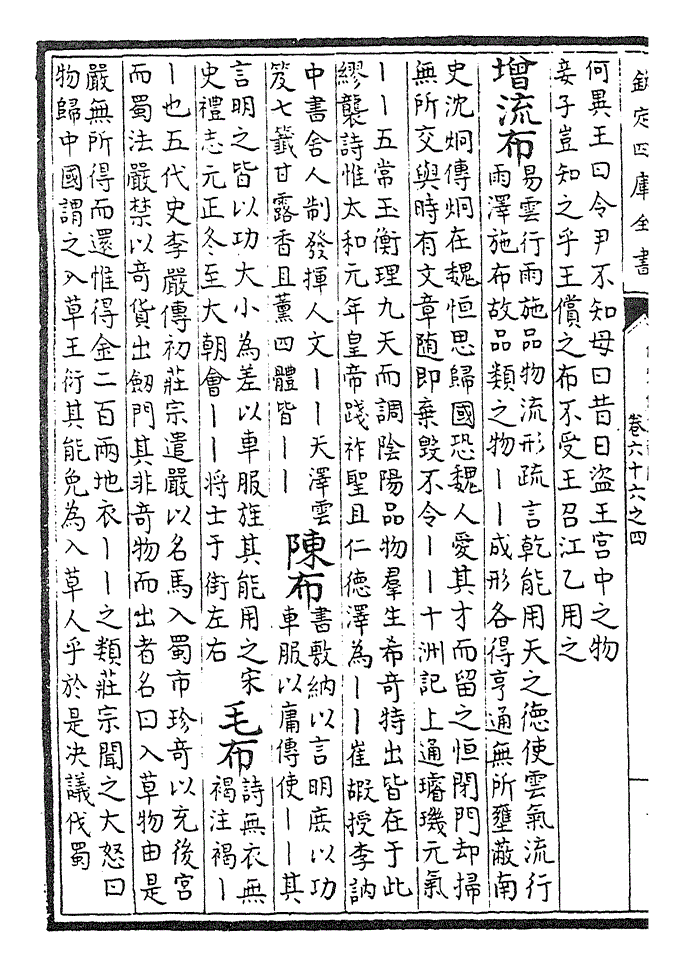 欽定四庫全書
卷六十六之四
何異王曰令尹不知母曰昔日盜王宮中之物
妾子豈知之乎王償之布不受王召江乙用之
增流布
易雲行雨施品物流形疏言乾能用天之德使雲氣流行
雨澤施布故品類之物丨丨成形各得亨通無所壅蔽南
史沈炯傳炯在魏恒思歸國恐魏人愛其才而留之恒閉門却掃
無所交與時有文章随即棄毀不令丨丨十洲記上通璿璣元氣
丨丨五常玉衡理九天而調陰陽品物羣生希奇特出皆在于此
繆襲詩惟太和元年皇帝踐祚聖且仁德澤為丨丨崔嘏授李訥
中書舍人制發揮人文丨丨天澤雲
笈七籤甘露香且薰四體皆丨丨
陳布
書敷納以言明庶以功
車服以庸傳使丨丨其
言明之皆以功大小為差以車服旌其能用之宋
史禮志元正冬至大朝會丨丨將士于街左右
毛布
詩無衣無
褐注褐丨
丨也五代史李嚴傳初莊宗遣嚴以名馬入蜀市珍奇以充後宮
而蜀法嚴禁以奇貨出劒門其非奇物而出者名曰入草物由是
嚴無所得而還惟得金二百兩地衣丨丨之類莊宗聞之大怒曰
物歸中國謂之入草王衍其能免為入草人乎於是决議伐蜀